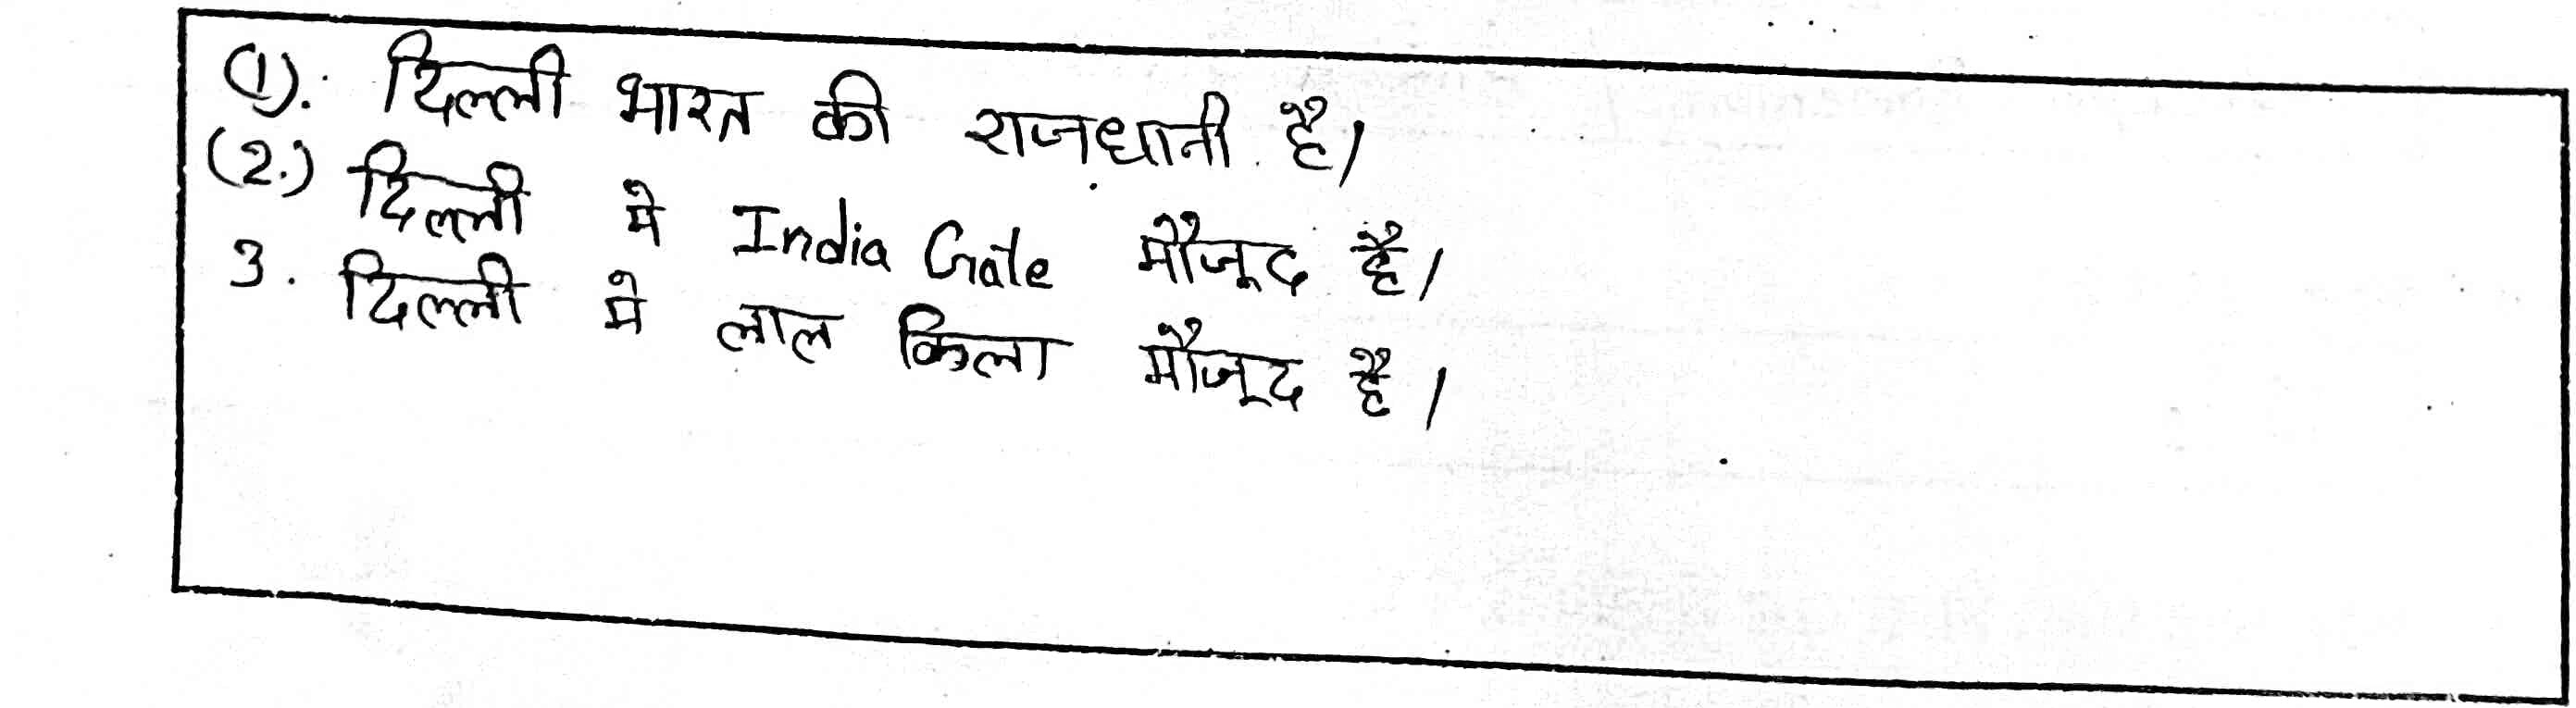 (1). दिल्ली भारत की राजधानी है।
(2.) दिल्ली मे India Gate मौजूद है।
3. दिल्ली मे लाल किला मौजूद है।